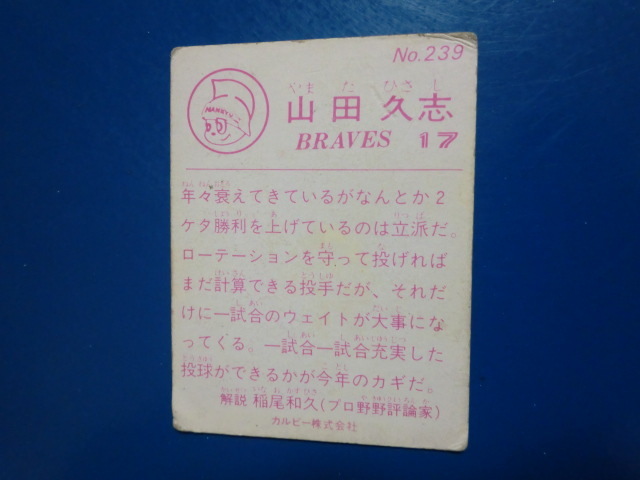 No.239
HANKYU
やま た ひさ し
山田久志
BRAVES 17
年々衰えてきているがなんとか2
ケタ勝利を上げているのは立派だ。
ローテーションを守って投げれば
まだ計算できる投手だが、それだ
けに一試合のウェイトが大事にな
ってくる。一試合一試合充実した
投球ができるかが今年のカギだ。
解説 稲尾和久(プロ野野評論家)
カルビー株式会社